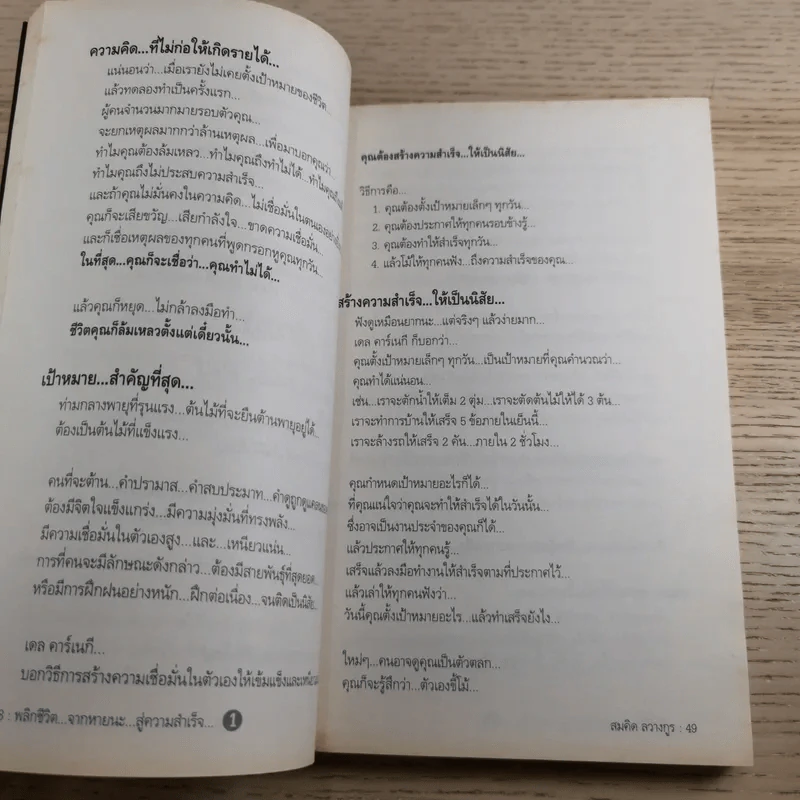 ความคิด...ที่ไม่ก่อให้เกิดรายได้...
แน่นอนว่า...เมื่อเรายังไม่เคยตั้งเป้าหมายของชีวิต...
แล้วทดลองทำเป็นครั้งแรก...
ผู้คนจำนวนมากมายรอบตัวคุณ...
จะยกเหตุผลมากกว่าล้านเหตุผล...เพื่อมาบอกคุณว่า...
ทำไมคุณต้องล้มเหลว...ทำไมคุณถึงทำไม่ได้...ทำไมคุณ
ทำไมคุณถึงไม่ประสบความสำเร็จ...
และถ้าคุณไม่มั่นคงในความคิด...ไม่เชื่อมั่นในตนเอง
คุณก็จะเสียขวัญ...เสียกำลังใจ...ขาดความเชื่อมั่น...
และก็เชื่อเหตุผลของทุกคนที่พูดกรอกหูคุณทุกวัน...
ในที่สุด...คุณก็จะเชื่อว่า...คุณทำไม่ได้...
แล้วคุณก็หยุด...ไม่กล้าลงมือทำ...
ชีวิตคุณก็ล้มเหลวตั้งแต่เดี๋ยวนั้น...
เป้าหมาย...สำคัญที่สุด...
ท่ามกลางพายุที่รุนแรง...ต้นไม้ที่จะยืนต้านพายุอยู่ได้...
ต้องเป็นต้นไม้ที่แข็งแรง...
คนที่จะต้าน...คำปรามาส...คำสบประมาท...คำดูถูกดูแคลน
ต้องมีจิตใจแข็งแกร่ง...มีความมุ่งมั่นที่ทรงพลัง...
มีความเชื่อมั่นในตัวเองสูง...และ...เหนียวแน่น...
การที่คนจะมีลักษณะดังกล่าว...ต้องมีสายพันธุ์ที่สุดยอด...
หรือมีการฝึกฝนอย่างหนัก...ฝึกต่อเนื่อง...จนติดเป็นนิสัย...
เดล คาร์เนกี...
บอกวิธีการสร้างความเชื่อมั่นในตัวเองให้เข้มแข็งและ
8 : พลิกชีวิต...จากหายนะ...สู่ความสำเร็จ... 1
คุณต้องสร้างความสำเร็จ...ให้เป็นนิสัย...
วิธีการคือ...
1. คุณต้องตั้งเป้าหมายเล็กๆ ทุกวัน...
2. คุณต้องประกาศให้ทุกคนรอบข้างรู้...
3. คุณต้องทำให้สำเร็จทุกวัน...
4. แล้วโม้ให้ทุกคนฟัง...ถึงความสำเร็จของคุณ...
สร้างความสำเร็จ...ให้เป็นนิสัย...
ฟังดูเหมือนยากนะ...แต่จริงๆ แล้วง่ายมาก...
เดล คาร์เนกี ก็บอกว่า...
คุณตั้งเป้าหมายเล็กๆ ทุกวัน...เป็นเป้าหมายที่คุณคำนวณว่า...
คุณทำได้แน่นอน...
เช่น...เราจะตักน้ำให้เต็ม 2 ตุ่ม...เราจะตัดต้นไม้ให้ได้ 3 ต้น...
เราจะทำการบ้านให้เสร็จ 5 ข้อภายในเย็นนี้...
เราจะล้างรถให้เสร็จ 2 คัน...ภายใน 2 ชั่วโมง...
คุณกำหนดเป้าหมายอะไรก็ได้...
ที่คุณแน่ใจว่าคุณจะทำให้สำเร็จได้ในวันนั้น...
ซึ่งอาจเป็นงานประจำของคุณก็ได้...
แล้วประกาศให้ทุกคนรู้...
เสร็จแล้วลงมือทำงานให้สำเร็จตามที่ประกาศไว้...
แล้วเล่าให้ทุกคนฟังว่า...
วันนี้คุณตั้งเป้าหมายอะไร...แล้วทำเสร็จยังไง...
ใหม่ๆ...คนอาจดูคุณเป็นตัวตลก...
คุณก็จะรู้สึกว่า...ตัวเองขี้โม้...
สมคิด ลวางกูร : 49